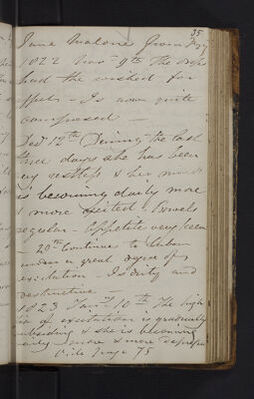 35
Jane Malone from Fry
1822 Novr 9th The drops
had the wished for
effect - Is now quite
composed -
Decr 12th During the last
three days she has been
very restless & her mind
is becoming daily more
& more excited - Bowels
regular - Appetite very keen
- 20th Continues to labor
under a great degree of
excitation - Is dirty and
destructive -
1823 Janry 10th The high
of excitation is gradually
subsiding & she is becoming
daily more & more depressed
Vide page 75